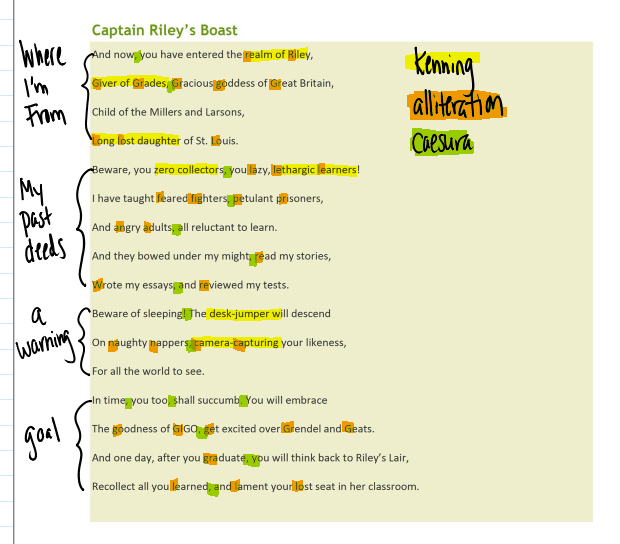 Captain Riley's Boast
Where I'm From
And now, you have entered the realm of Riley,
Giver of Grades, Gracious goddess of Great Britain,
Child of the Millers and Larsons,
Long lost daughter of St. Louis.
Kenning
alliteration
Caesura
My past deeds
Beware, you zero collectors, you lazy, lethargic learners!
I have taught feared fighters, petulant prisoners,
And angry adults, all reluctant to learn.
And they bowed under my might, read my stories,
Wrote my essays, and reviewed my tests.
a warning
Beware of sleeping! The desk-jumper will descend
On naughty nappers, camera-capturing your likeness,
For all the world to see.
goal
In time, you too, shall succumb. You will embrace
The goodness of GIGO, get excited over Grendel and Geats.
And one day, after you graduate, you will think back to Riley's Lair,
Recollect all you learned, and lament your lost seat in her classroom.